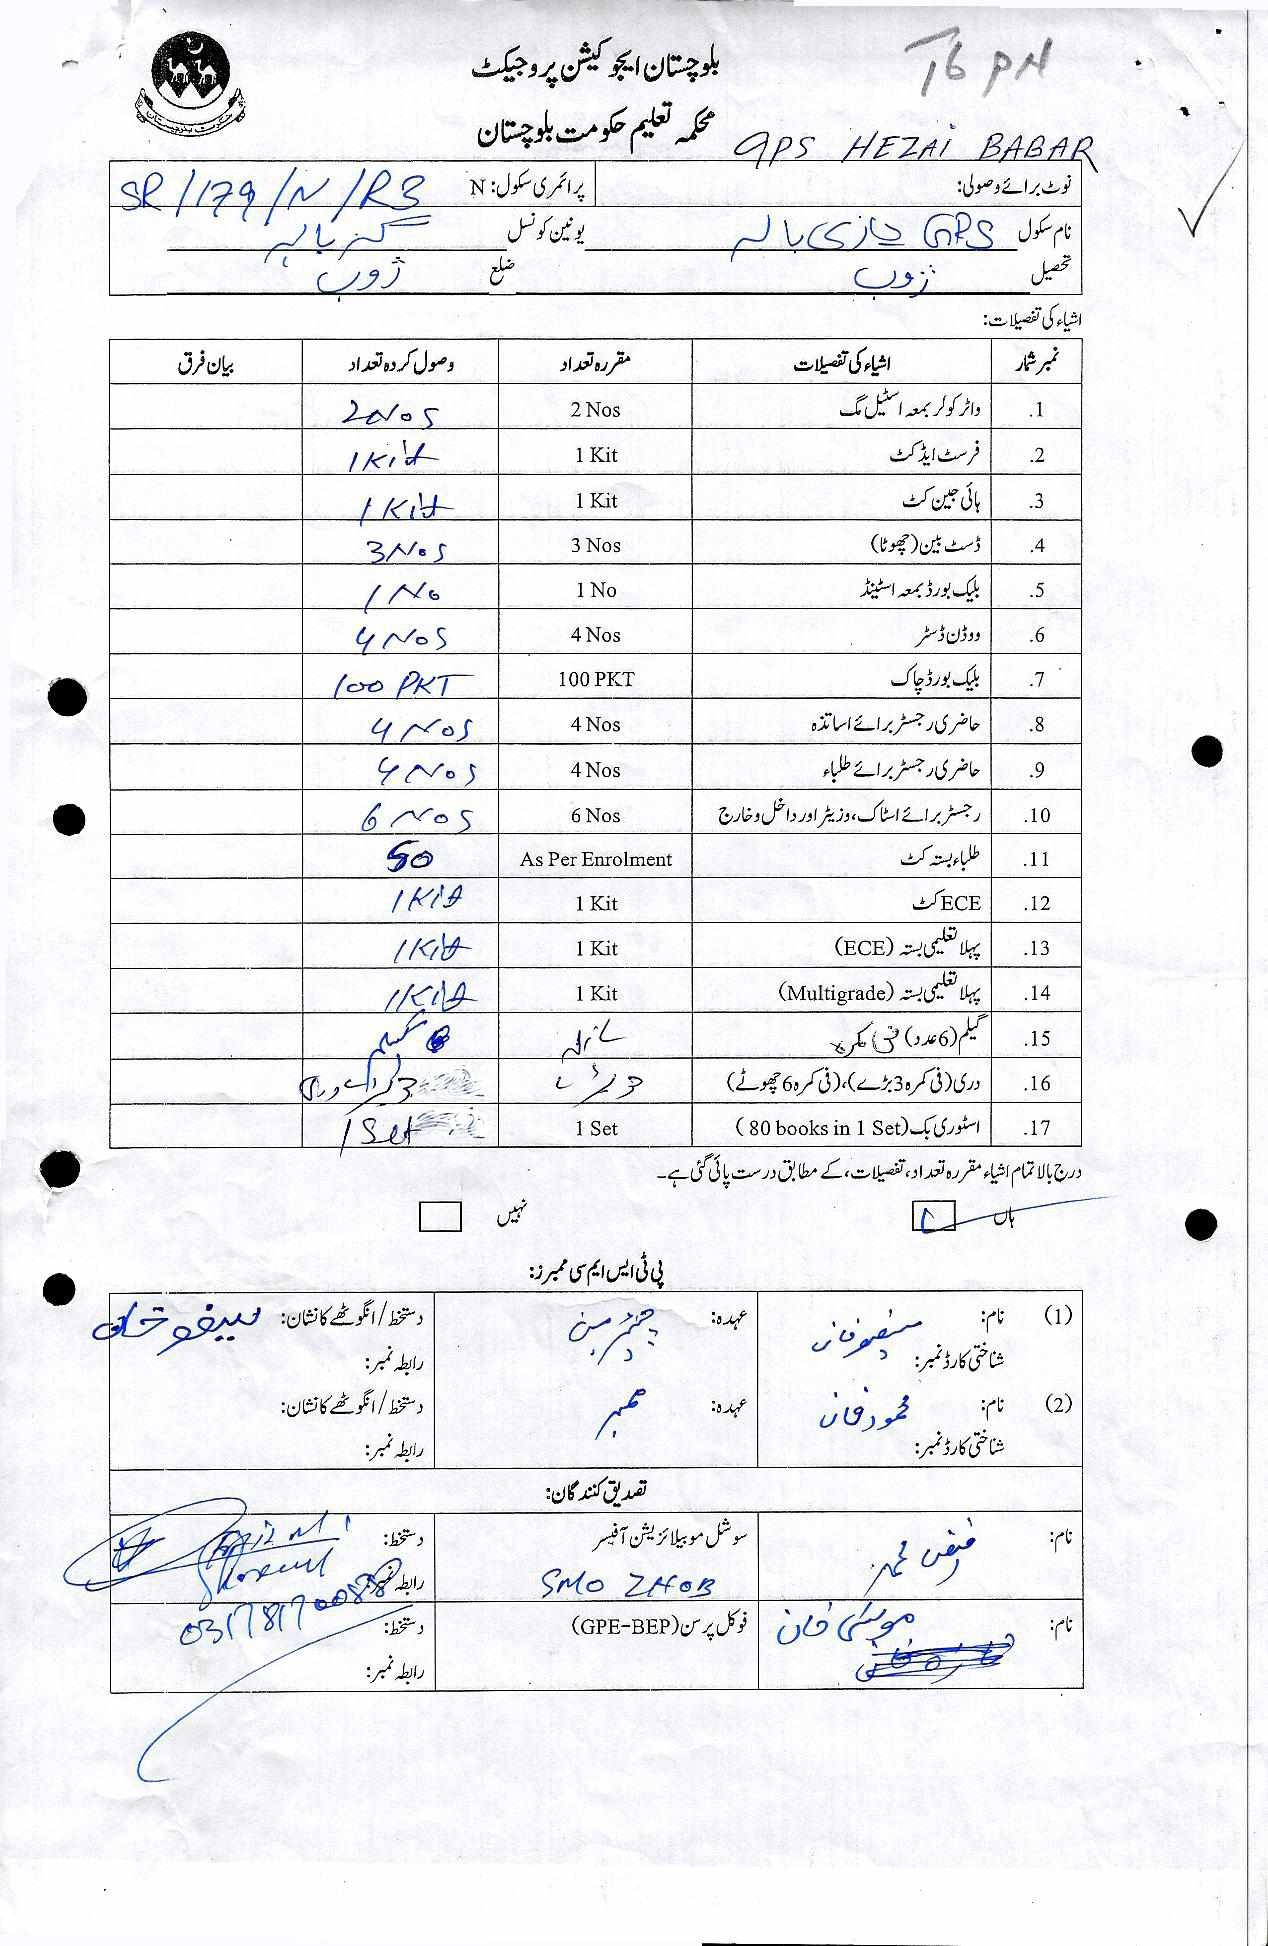 بلوچستان ایجوکیشن پروجیکٹ
T6 PM
محکمہ تعلیم حکومت بلوچستان
GPS HEZAI BABAR
نوٹ برائے وصولی: پرائمری سکول: N SR/179/N/R3
نام سکول GPS بالہ یونین کونسل
تحصیل ژوب ضلع ژوب
اشیاء کی تفصیلات:
نمبر شمار اشیاء کی تفصیلات مقررہ تعداد وصول کردہ تعداد بیان فرق
1. واٹر کولر بمعہ اسٹیل مگ 2 Nos 2 Nos
2. فرسٹ ایڈ کٹ 1 Kit 1 Kit
3. ہائی جین کٹ 1 Kit 1 Kit
4. ڈسٹ بین (چھوٹا) 3 Nos 3 Nos
5. بلیک بورڈ بمعہ اسٹینڈ 1 No 1 No
6. ووڈن ڈسٹر 4 Nos 4 Nos
7. بلیک بورڈ چاک 100 PKT 100 PKT
8. حاضری رجسٹر برائے اساتذہ 4 Nos 4 Nos
9. حاضری رجسٹر برائے طلباء 4 Nos 4 Nos
10. رجسٹر برائے اسٹاک، وزیٹر اور داخل و خارج 6 Nos 6 Nos
11. طلباء بستہ کٹ As Per Enrolment 50
12. ECE کٹ 1 Kit 1 Kit
13. پہلا تعلیمی بستہ (ECE) 1 Kit 1 Kit
14. پہلا تعلیمی بستہ (Multigrade) 1 Kit 1 Kit
15. گیلم (6 عدد) فی کمرہ
16. دری (فی کمرہ 3 بڑے)، (فی کمرہ 6 چھوٹے)
17. اسٹوری بک (80 books in 1 Set) 1 Set 1 Set
درج بالا تمام اشیاء مقررہ تعداد، تفصیلات، کے مطابق درست پائی گئی ہے۔
ہاں نہیں
پی ٹی ایس ایم سی ممبرز:
(1) نام: عہدہ: چیئرمین دستخط/انگوٹھے کا نشان: سیفو خان
شناختی کارڈ نمبر: رابطہ نمبر:
(2) نام: محمود خان عہدہ: ممبر دستخط/انگوٹھے کا نشان:
شناختی کارڈ نمبر: رابطہ نمبر:
تصدیق کنندگان:
نام: سوشل موبیلائزیشن آفیسر دستخط:
SMO ZHOB رابطہ نمبر:
03178170088
نام: موسیٰ خان فوکل پرسن (GPE-BEP) دستخط:
رابطہ نمبر: